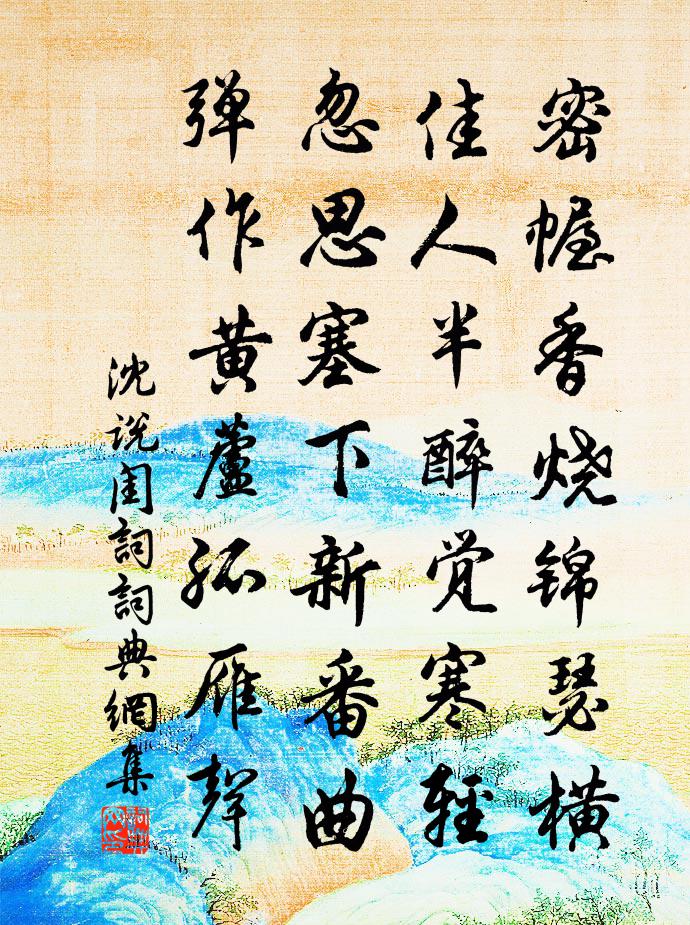 密幄香烧锦瑟横
佳人半醉觉寒轻
忽思塞下新番曲
弹作黄蘆孤雁聲
沈说闺詞詞典網集